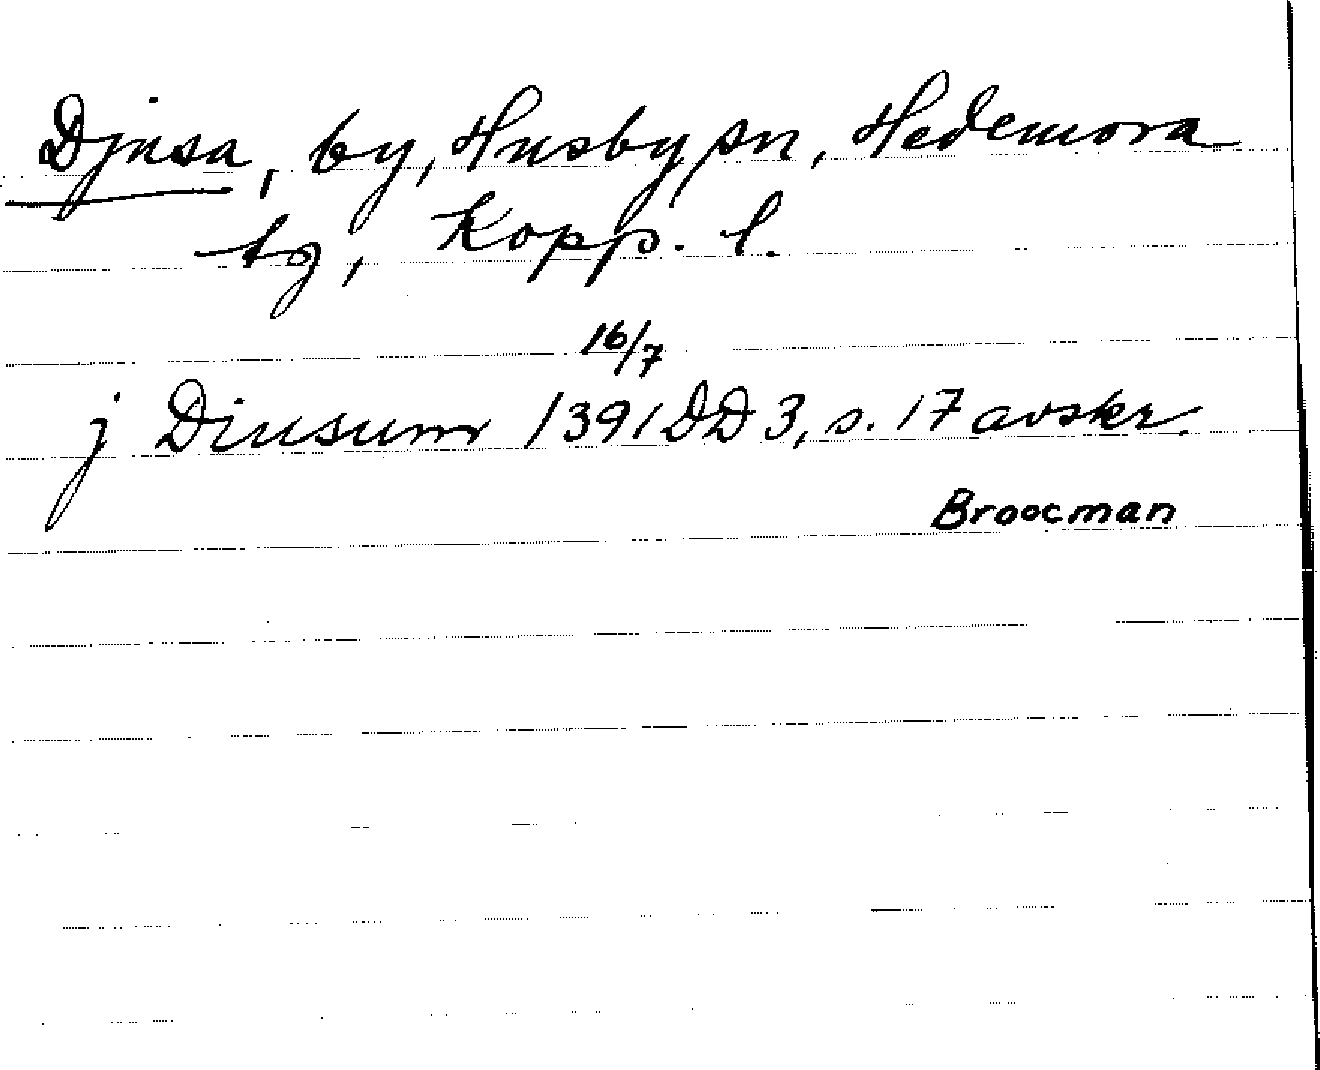 Djusa, by, Husby sn, Hedemora
tg, Kopp. l.
16/7
j Diusum 1391 DD 3, s. 17 avskr.
Broocman